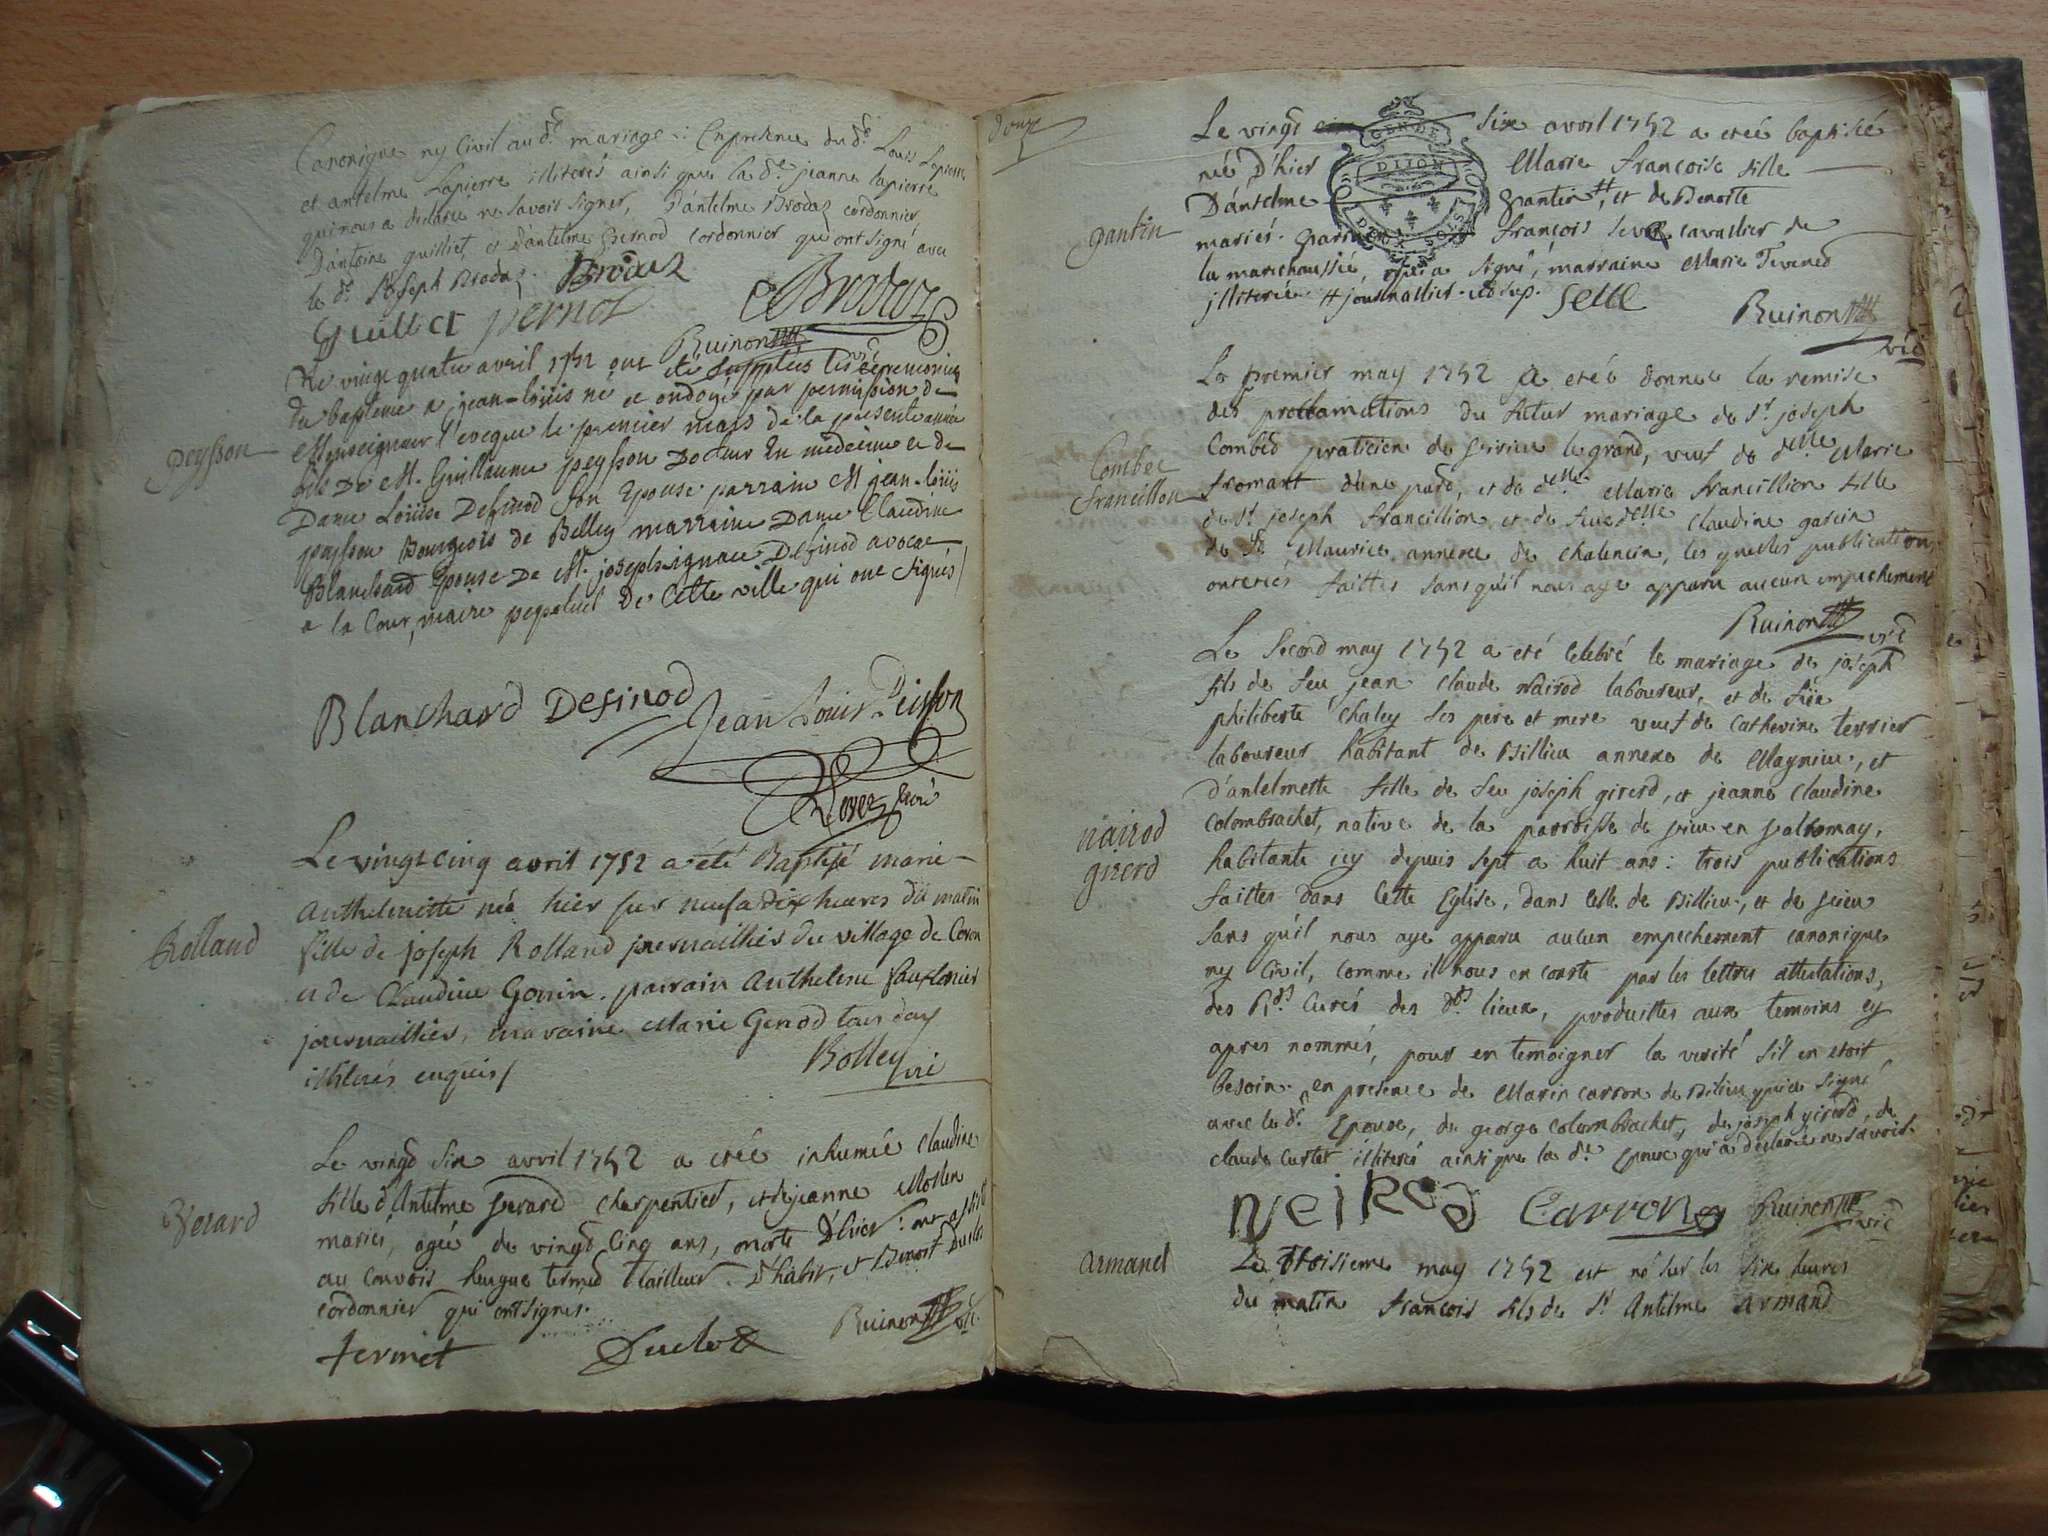 Canonique ny Civil au dt. mariage : En presence du dt. Louis Lapierre
et antelme Lapierre illiterés ainsi que la de. jeanne lapierre
qui nous a declaré ne savoir signer, D'antelme Brodaz cordonnier
D'antoine guilliet, et D'antelme pernod Cordonnier qui ont signé avec
le dt. Joseph Brodaz. Brodaz
Guilliet pernod Brodaz
Ruinon vic
peysson
Le vingt quatre avril 1752 ont été supplées les ceremonies
du bapteme a jean-loüis né et ondoyé par permission de
Monseigneur l'eveque le premier mars de la presente année
fils De M. Guillaume peysson Docteur En medecine et de
Dame Loüise Desinod son Epouse parrain M jean-loüis
peysson Bourgeois de Belley marraine Dame Claudine
Blanchard Epouse De M. joseph ignace Desinod avocat
a la Cour, maire perpetuel De Cette ville qui ont signés
Blanchard Desinod Jean Louis Peisson
Curé
Rolland
Le vingt cinq avril 1752 a été Baptisé marie-
Anthelmette née hier sur neuf a dix heures du matin
fille de joseph Rolland journaillier du village de Coron
et de Claudine Gonin. parrain Anthelme
journaillier, maraine Marie Genod tous deux
illiterés enquis
Rolley vic
Verard
Le vingt six avril 1752 a eteé inhumée Claudine
fille d'Antelme Gerard Charpentier, et de jeanne Mollen
mariés, agée de vingt Cinq ans, morte D'hier : ont assisté
au Convois hugue termet tailleur D'habit, et Benoit Duclos
cordonnier qui ont signes.
termet Duclos Ruinon vic
Douze
GEN DE DIJON
pantin
Le vingt six avril 1752 a eteé baptisée
née D'hier Marie françoise fille
D'antelme pantin #, et de Benoite
mariés. parrain françois seve cavallier de
la marechaussée, qui a signé, marraine Marie Tivened
jlliterée # journallier. Seve
Ruinon
vic
Combet
francillon
Le premier may 1752 a eteé donnée la remise
des proclamations du futur mariage de Sr joseph
Combet praticien de seirieu le grand, veuf de delle Marie
fromant d'une part, et de delle Marie francillion fille
de Sr joseph francillion et de feue delle Claudine garcin
de St Maurice annexe de Chalencin, les quelles publications
ont etés faittes sans qu'il nous aye apparu aucun empechement
Ruinon vic
nairod
girerd
Le Second may 1752 a eté Celebré le mariage de joseph
fils de feu jean Claude Nairod laboureur, et de fëe
philiberte Chaley ses pere et mere veuf de Catherine terrier
laboureur habitant de Billieu annexe de Magnieu, et
D'antelmette fille de feu joseph girerd, et jeanne Claudine
Colombrachet, native de la parroisse de sieu en valromay,
habitante icy depuis sept a huit ans : trois publications
faittes dans Cette Eglise, dans Celle de Billieu, et de seieu
sans qu'il nous aye apparu aucun empechement canonique
ny Civil, Comme il nous en conste par les lettres attestations,
des Rds Curés des dts lieux, produittes aux temoins cy
apres nommés, pour en temoigner la verité s'il en etoit
besoin. en presence de Marin Carron de Bilieu qui a signé
avec le dt. Epoux, de george Colombrachet, de joseph girerd, de
claude Curtet illiterés ainsi que la de. Epouse qui a declaré ne savoir.
Neirod Carron Ruinon vic
armand
Le troisieme may 1752 est né sur les six heures
du matin françois fils de Sr Antelme armand